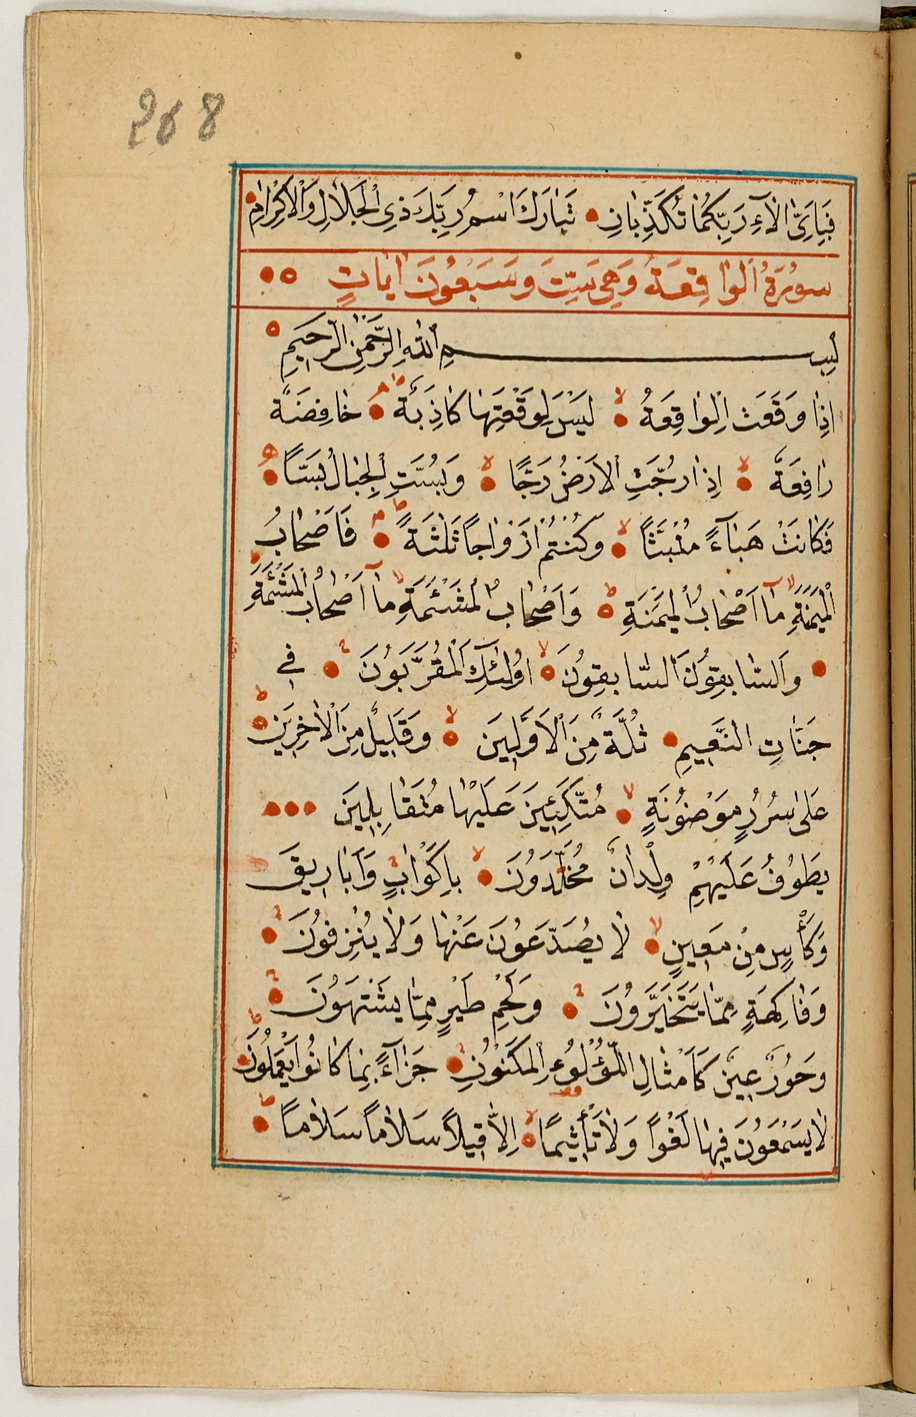 268
فَبِاَىِّ اٰلَاۤءِ رَبِّكُمَا تُكَذِّبَانِ تَبَارَكَ اسْمُ رَبِّكَ ذِى الْجَلَالِ وَالْاِكْرَامِ
سُورَةُ الْوَاقِعَةِ وَهِىَ سِتَّ وَسَبْعُونَ اٰيَاتٍ
بِسْمِ اللّٰهِ الرَّحْمٰنِ الرَّحِيمِ
اِذَا وَقَعَتِ الْوَاقِعَةُ لَيْسَ لِوَقْعَتِهَا كَاذِبَةٌ خَافِضَةٌ
رَافِعَةٌ اِذَا رُجَّتِ الْاَرْضُ رَجًّا وَبُسَّتِ الْجِبَالُ بَسًّا
فَكَانَتْ هَبَاۤءً مُنْبَثًّا وَكُنْتُمْ اَزْوَاجًا ثَلٰثَةً فَاَصْحَابُ
الْمَيْمَنَةِ مَاۤ اَصْحَابُ الْمَيْمَنَةِ وَاَصْحَابُ الْمَشْـَٔمَةِ مَاۤ اَصْحَابُ الْمَشْـَٔمَةِ
وَالسَّابِقُونَ السَّابِقُونَ اُولٰئِكَ الْمُقَرَّبُونَ فِى
جَنَّاتِ النَّعِيمِ ثُلَّةٌ مِنَ الْاَوَّلِينَ وَقَلِيلٌ مِنَ الْاٰخِرِينَ
عَلٰى سُرُرٍ مَوْضُونَةٍ مُتَّكِـِٔينَ عَلَيْهَا مُتَقَابِلِينَ
يَطُوفُ عَلَيْهِمْ وِلْدَانٌ مُخَلَّدُونَ بِاَكْوَابٍ وَاَبَارِيقَ
وَكَأْسٍ مِنْ مَعِينٍ لَا يُصَدَّعُونَ عَنْهَا وَلَا يُنْزِفُونَ
وَفَاكِهَةٍ مِمَّا يَتَخَيَّرُونَ وَلَحْمِ طَيْرٍ مِمَّا يَشْتَهُونَ
وَحُورٌ عِينٌ كَاَمْثَالِ اللُّؤْلُؤِ الْمَكْنُونِ جَزَاۤءً بِمَا كَانُوا يَعْمَلُونَ
لَا يَسْمَعُونَ فِيهَا لَغْوًا وَلَا تَأْثِيمًا اِلَّا قِيلًا سَلَامًا سَلَامًا